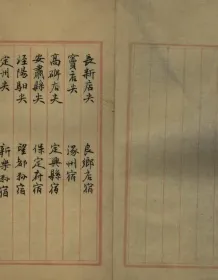 長新店尖
良鄉店宿
竇店尖
涿州宿
高碑店尖
定興縣宿
安肅縣尖
保定府宿
涇陽馹尖
望都縣宿
定州尖
新樂縣宿